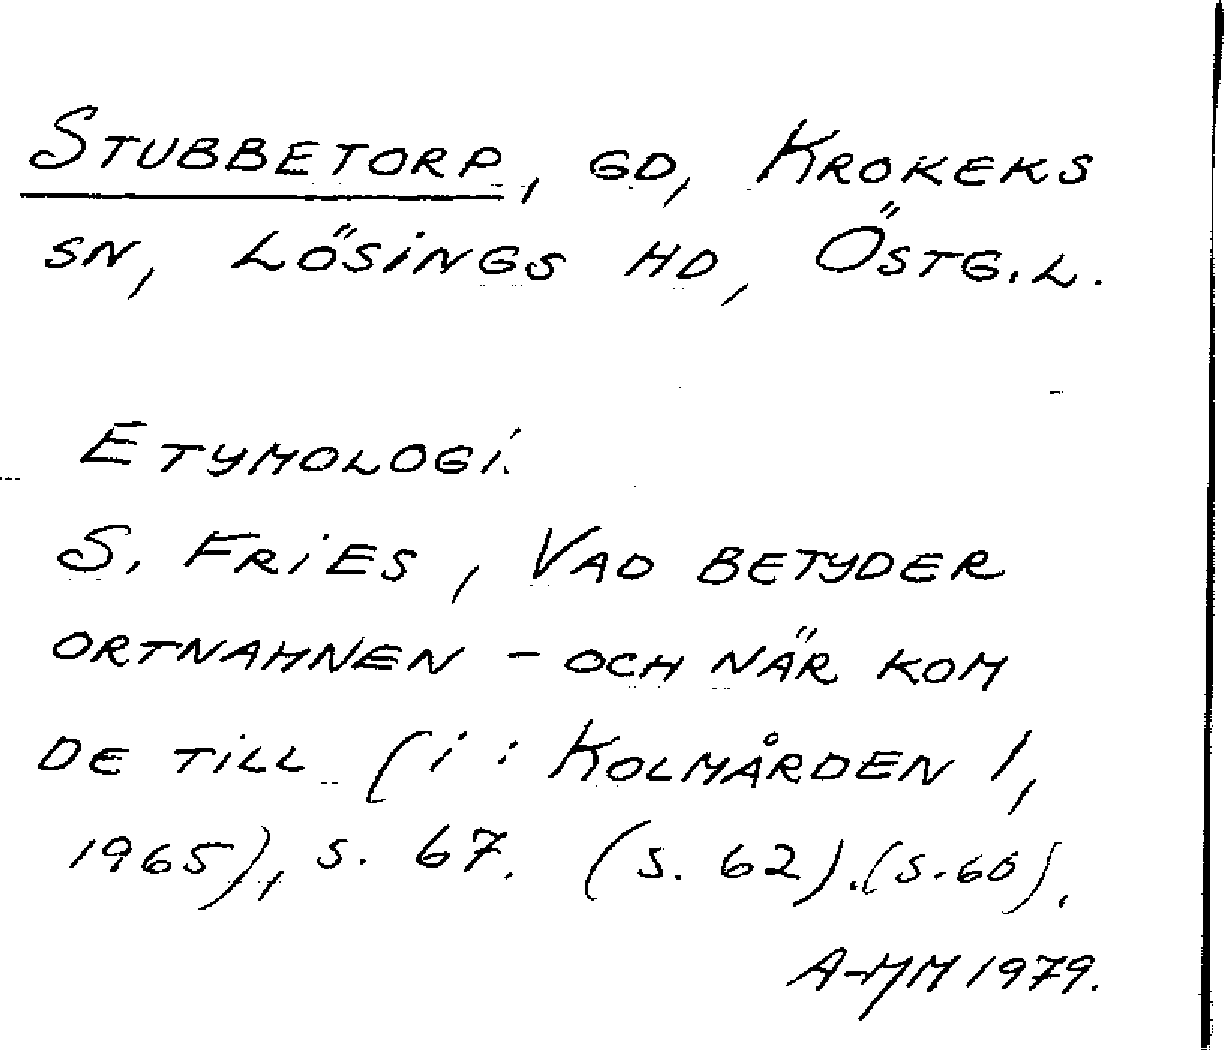 STUBBETORP, GD, KROKEKS
SN, LÖSINGS HD, ÖSTG.L.
ETYMOLOGI.
S. FRIES, VAD BETYDER
ORTNAMNEN - OCH NÄR KOM
DE TILL (i: KOLMÅRDEN 1,
1965), s. 67. (s. 62).(s.60).
A-MM 1979.